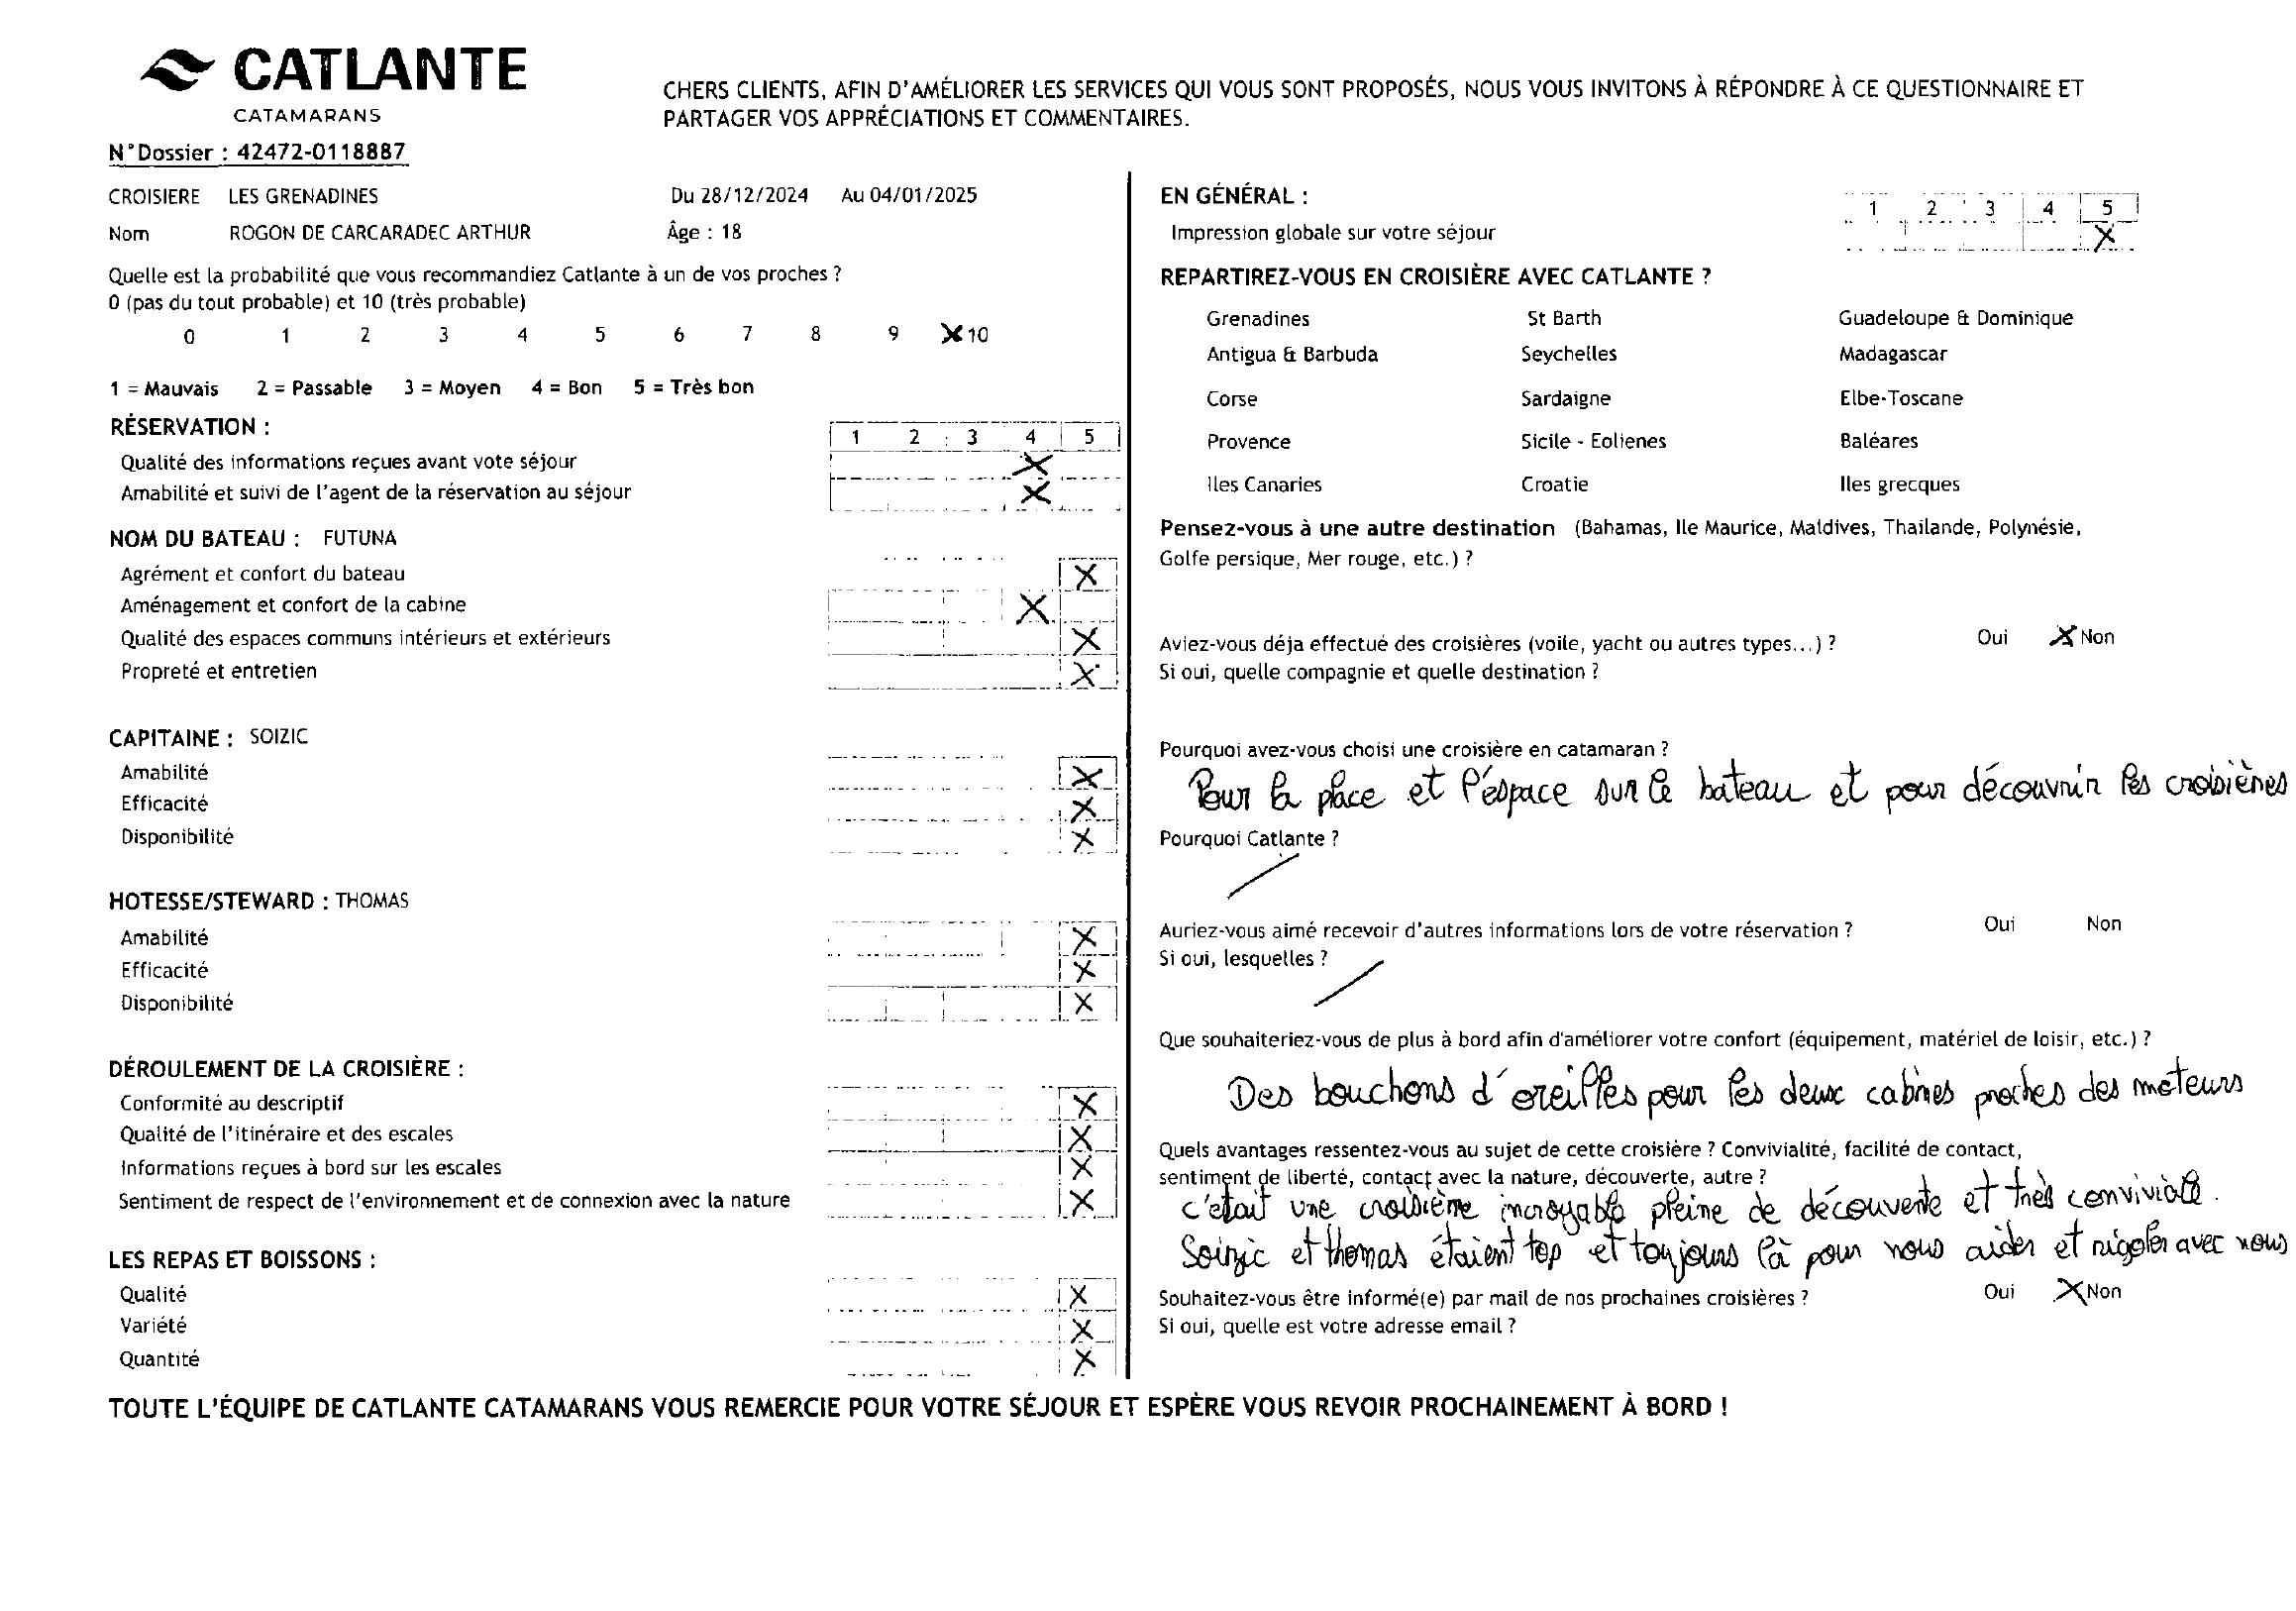 CATLANTE
CATAMARANS
CHERS CLIENTS, AFIN D'AMÉLIORER LES SERVICES QUI VOUS SONT PROPOSÉS, NOUS VOUS INVITONS À RÉPONDRE À CE QUESTIONNAIRE ET
PARTAGER VOS APPRÉCIATIONS ET COMMENTAIRES.
N°Dossier : 42472-0118887
CROISIERE LES GRENADINES Du 28/12/2024 Au 04/01/2025
Nom ROGON DE CARCARADEC ARTHUR Âge : 18
Quelle est la probabilité que vous recommandiez Catlante à un de vos proches ?
0 (pas du tout probable) et 10 (très probable)
0 1 2 3 4 5 6 7 8 9 X 10
1 = Mauvais 2 = Passable 3 = Moyen 4 = Bon 5 = Très bon
RÉSERVATION :
1 2 3 4 5
Qualité des informations reçues avant vote séjour X
Amabilité et suivi de l'agent de la réservation au séjour X
NOM DU BATEAU : FUTUNA
Agrément et confort du bateau X
Aménagement et confort de la cabine X
Qualité des espaces communs intérieurs et extérieurs X
Propreté et entretien X
CAPITAINE : SOIZIC
Amabilité X
Efficacité X
Disponibilité X
HOTESSE/STEWARD : THOMAS
Amabilité X
Efficacité X
Disponibilité X
DÉROULEMENT DE LA CROISIÈRE :
Conformité au descriptif X
Qualité de l'itinéraire et des escales X
Informations reçues à bord sur les escales X
Sentiment de respect de l'environnement et de connexion avec la nature X
LES REPAS ET BOISSONS :
Qualité X
Variété X
Quantité X
EN GÉNÉRAL :
1 2 3 4 5
Impression globale sur votre séjour X
REPARTIREZ-VOUS EN CROISIÈRE AVEC CATLANTE ?
Grenadines St Barth Guadeloupe & Dominique
Antigua & Barbuda Seychelles Madagascar
Corse Sardaigne Elbe-Toscane
Provence Sicile - Eolienes Baléares
Iles Canaries Croatie Iles grecques
Pensez-vous à une autre destination (Bahamas, Ile Maurice, Maldives, Thailande, Polynésie,
Golfe persique, Mer rouge, etc.) ?
Aviez-vous déja effectué des croisières (voile, yacht ou autres types...) ? Oui X Non
Si oui, quelle compagnie et quelle destination ?
Pourquoi avez-vous choisi une croisière en catamaran ?
Pour la place et l'éspace sur le bateau et pour découvrir les croisières
Pourquoi Catlante ?
Auriez-vous aimé recevoir d'autres informations lors de votre réservation ? Oui Non
Si oui, lesquelles ?
Que souhaiteriez-vous de plus à bord afin d'améliorer votre confort (équipement, matériel de loisir, etc.) ?
Des bouchons d'oreilles pour les deux cabines proches des moteurs
Quels avantages ressentez-vous au sujet de cette croisière ? Convivialité, facilité de contact,
sentiment de liberté, contact avec la nature, découverte, autre ?
c'était une croisière incroyable pleine de découverte et très conviviale.
Soizic et thomas étaient top et toujours là pour nous aider et rigoler avec nous
Souhaitez-vous être informé(e) par mail de nos prochaines croisières ? Oui X Non
Si oui, quelle est votre adresse email ?
TOUTE L'ÉQUIPE DE CATLANTE CATAMARANS VOUS REMERCIE POUR VOTRE SÉJOUR ET ESPÈRE VOUS REVOIR PROCHAINEMENT À BORD !